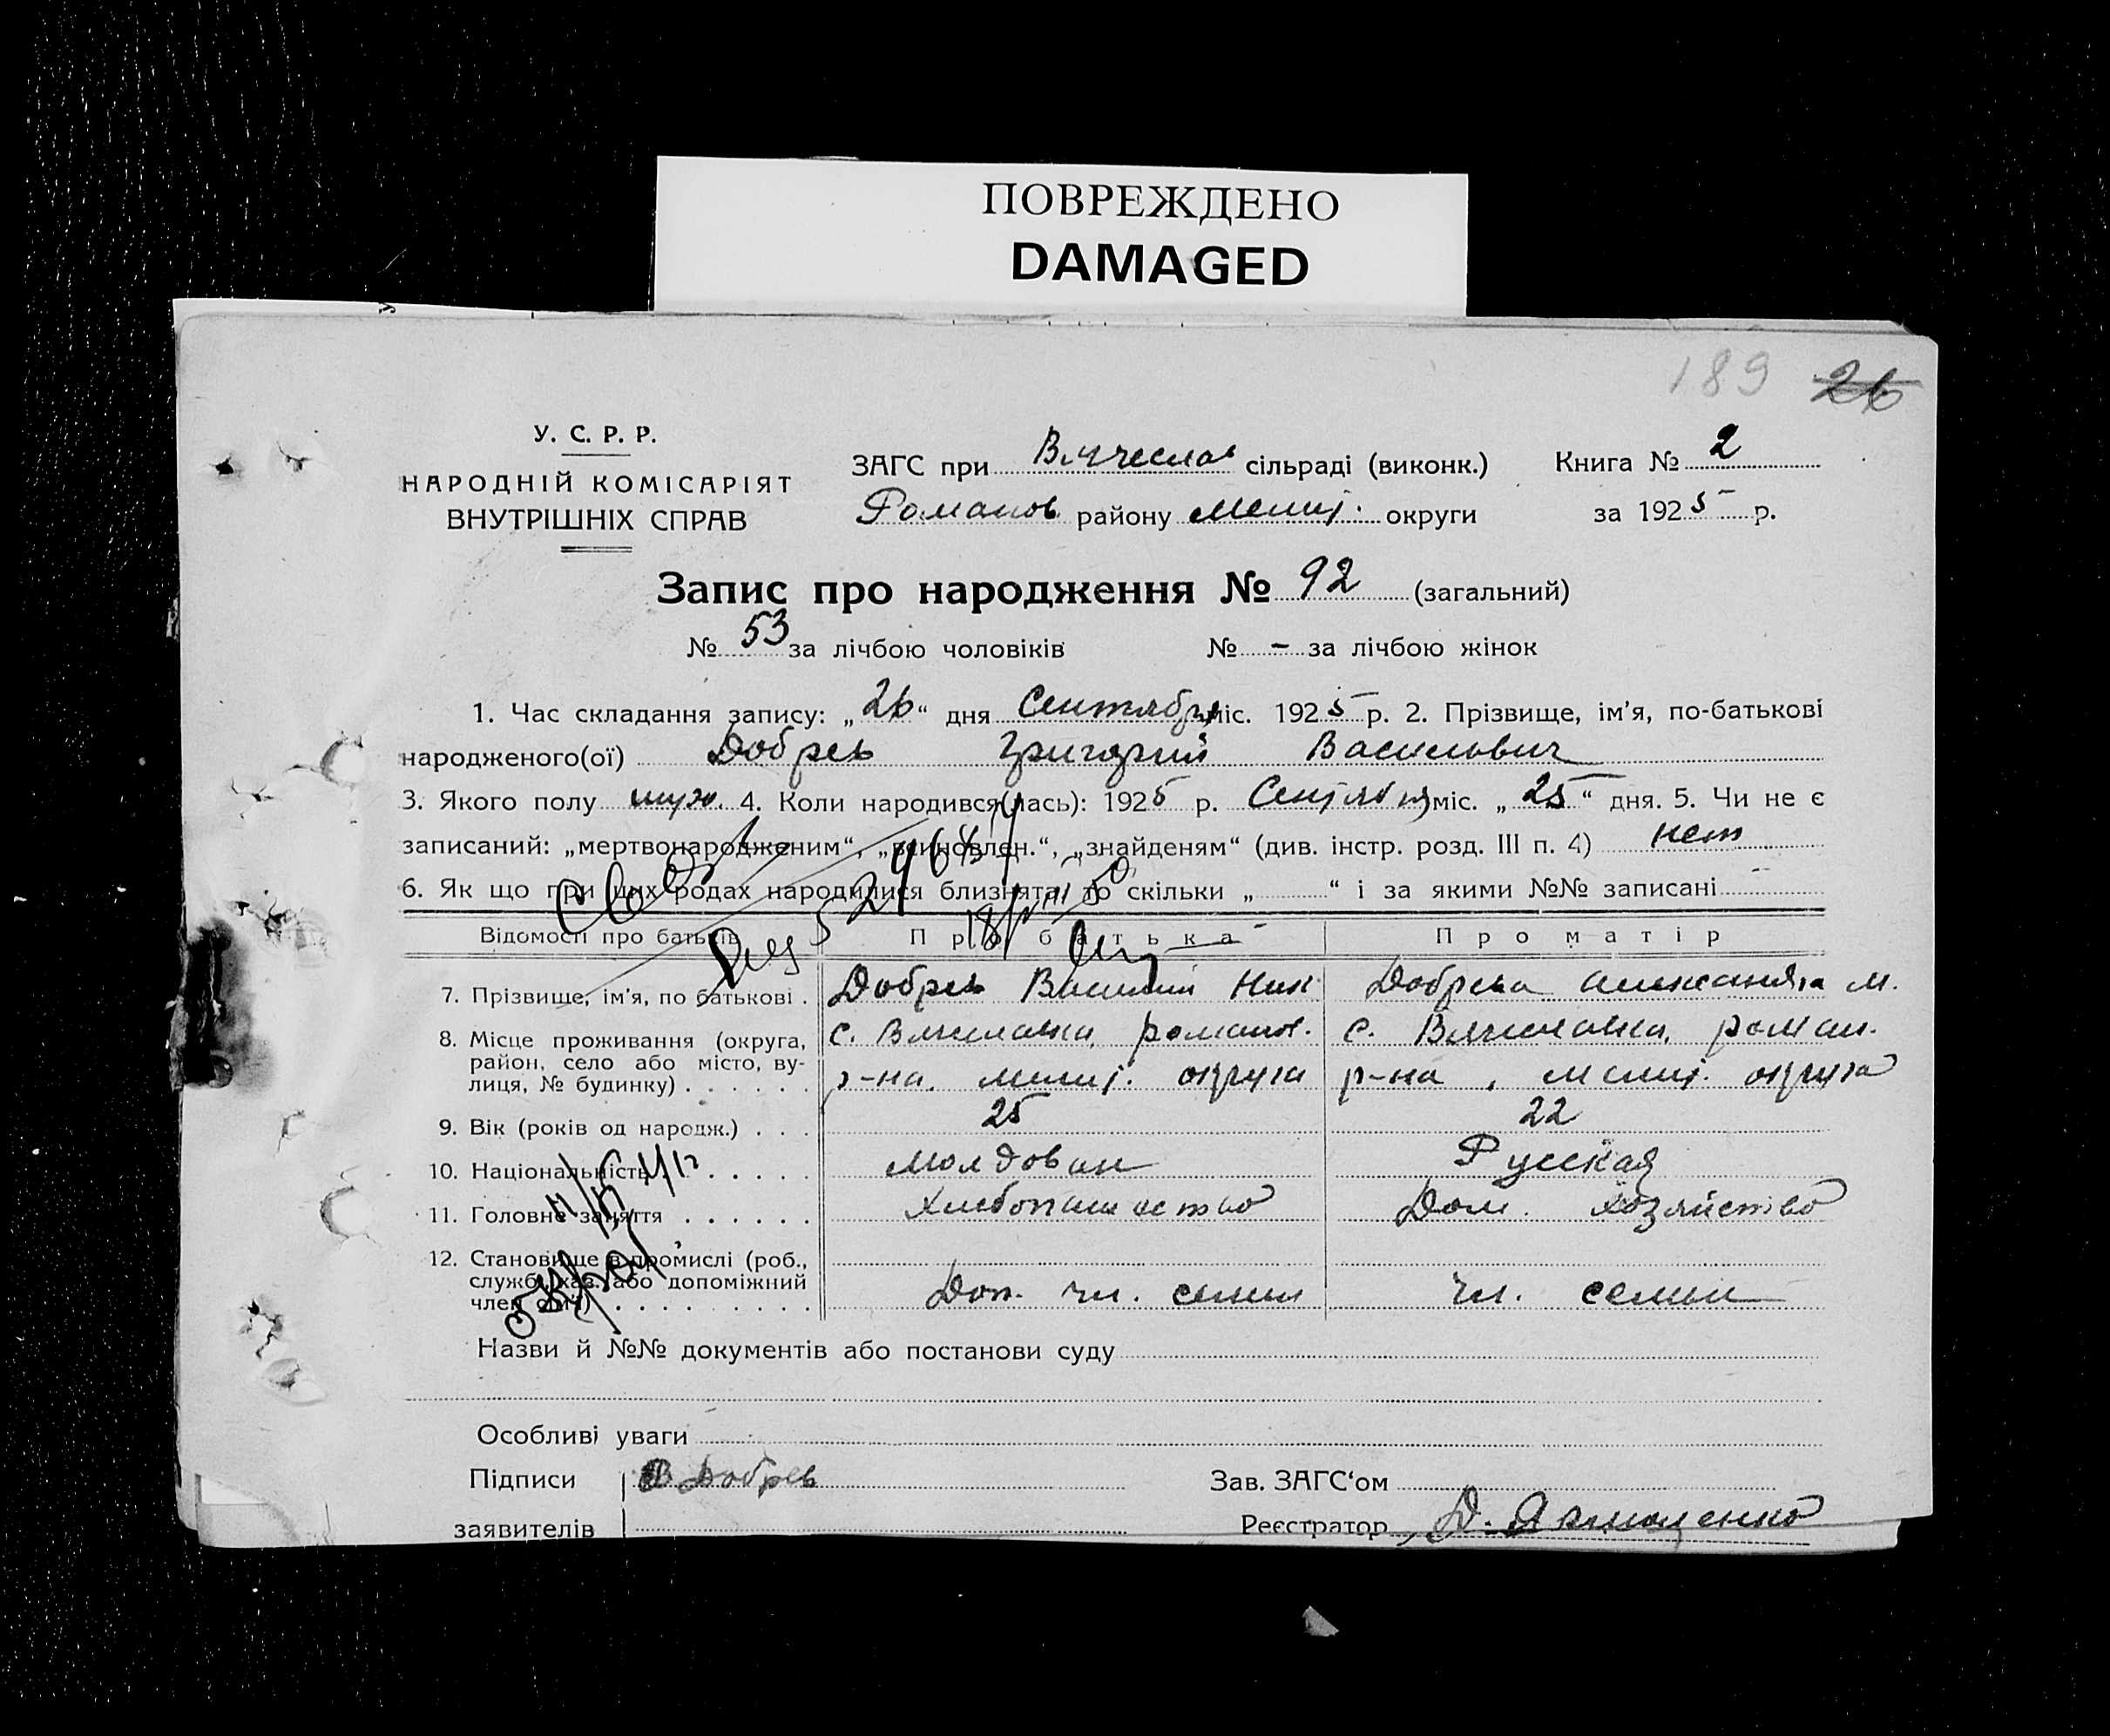 ПОВРЕЖДЕНО
DAMAGED
189 26
У. С. Р. Р.
НАРОДНІЙ КОМІСАРІЯТ
ВНУТРІШНІХ СПРАВ
ЗАГС при Вячеслав сільраді (виконк.)
Романов. району Мелит. округи
Книга № 2
за 1925 р.
Запис про народження № 92 (загальний)
№ 53 за лічбою чоловіків № – за лічбою жінок
1. Час складання запису: „26“ дня Сентября міс. 1925 р. 2. Прізвище, ім'я, по-батькові
народженого(ої) Добрев Григорий Васильевич
3. Якого полу муж. 4. Коли народився(лась): 1925 р. Сентября міс. „25“ дня. 5. Чи не є
записаний: „мертвонародженим“, „всиновлен.“, „знайденям“ (див. інстр. розд. III п. 4) нет
6. Як що при цих родах народилися близнята, то скільки „ “ і за якими №№ записані
Відомості про батьків Про батька Про матір
7. Прізвище, ім'я, по батькові . Добрев Василий Ник Добрева Александра М.
8. Місце проживання (округа, район, село або місто, вулиця, № будинку) . . . . . . с. Вячеславка, романов. р-на, мелит. округа с. Вячеславка, роман. р-на, мелит. округа
9. Вік (років од народж.) . . . 25 22
10. Національність . . . . . . Молдован Русская
11. Головне заняття . . . . . . Хлебопашество Дом. хозяйство
12. Становище в промислі (роб., службов., хаз. або допоміжний член сім'ї) . . . . . . . . . Доп. чл. семьи чл. семьи
Назви й №№ документів або постанови суду
Особливі уваги
Підписи В Добрев
заявителів
Зав. ЗАГС'ом
Реєстратор Д.